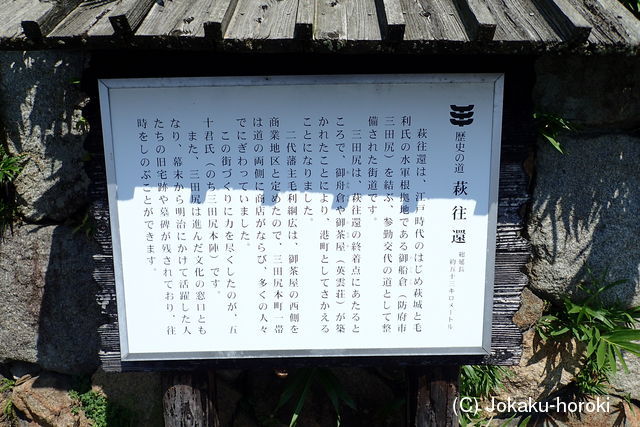 歴史の道 萩往還 総延長 約五十三キロメートル
萩往還は、江戸時代のはじめ萩城と毛
利氏の水軍根拠地である御船倉（防府市
三田尻）を結ぶ、参勤交代の道として整
備された街道です。
三田尻は、萩往還の終着点にあたると
ころで、御舟倉や御茶屋（英雲荘）が築
かれたことにより、港町としてさかえる
ことになりました。
二代藩主毛利綱広は、御茶屋の西側を
商業地区と定めたので、三田尻本町一帯
は道の両側に商店がならび、多くの人々
でにぎわっていました。
この街づくりに力を尽くしたのが、五
十君氏（のち三田尻本陣）です。
また、三田尻は進んだ文化の窓口とも
なり、幕末から明治にかけて活躍した人
たちの旧宅跡や墓碑が残されており、往
時をしのぶことができます。
(C) Jokaku-horoki